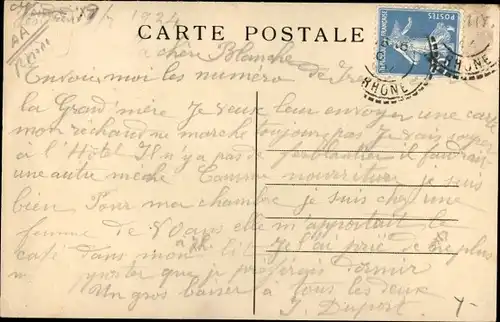 1924
CARTE POSTALE
RÉPUBLIQUE FRANÇAISE
POSTES
RHONE
RHONE
chère Blanche
Envoies moi les numero de
la Grand'mère Je veux leur envoyer une carte
mon réchaud ne marche toujours pas Je vais
à l'Hôtel Il n'y a pas de ferblantier il faudrait
une autre mèche Comme nourriture je suis
bien Pour ma chambre je suis chez une
femme de 40 ans elle m'apportait le
café dans mon lit Je l'ai prié de ne plus
que je préférais dormir
Un gros baiser à tous les deux
J. Duport